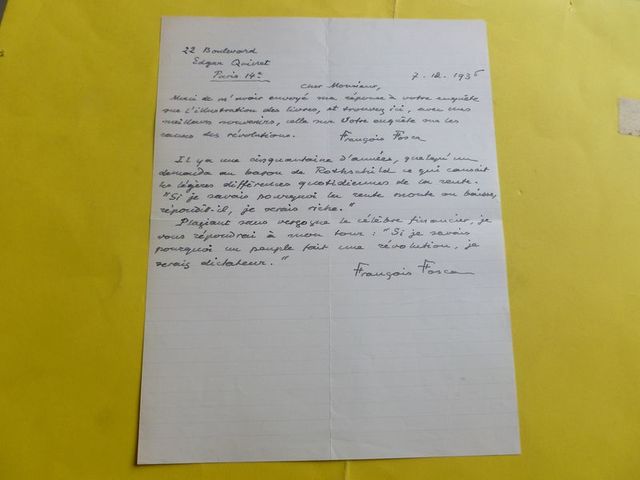 22 Boulevard
Edgar Quinet
Paris 14e
7.12.1935
Cher Monsieur,
Merci de m'avoir envoyé ma réponse à votre enquête
sur l'illustration des livres, et trouvez ici, avec mes
meilleurs souvenirs, celle sur votre enquête sur les
causes des révolutions.
François Fosca
Il y a une cinquantaine d'années, quelqu'un
demanda au baron de Rothschild ce qui causait
les légères différences quotidiennes de la rente.
"Si je savais pourquoi la rente monte ou baisse,
répondit-il, je serais riche."
Plagiant sans vergogne le célèbre financier, je
vous répondrai à mon tour : "Si je savais
pourquoi un peuple fait une révolution, je
serais dictateur."
François Fosca